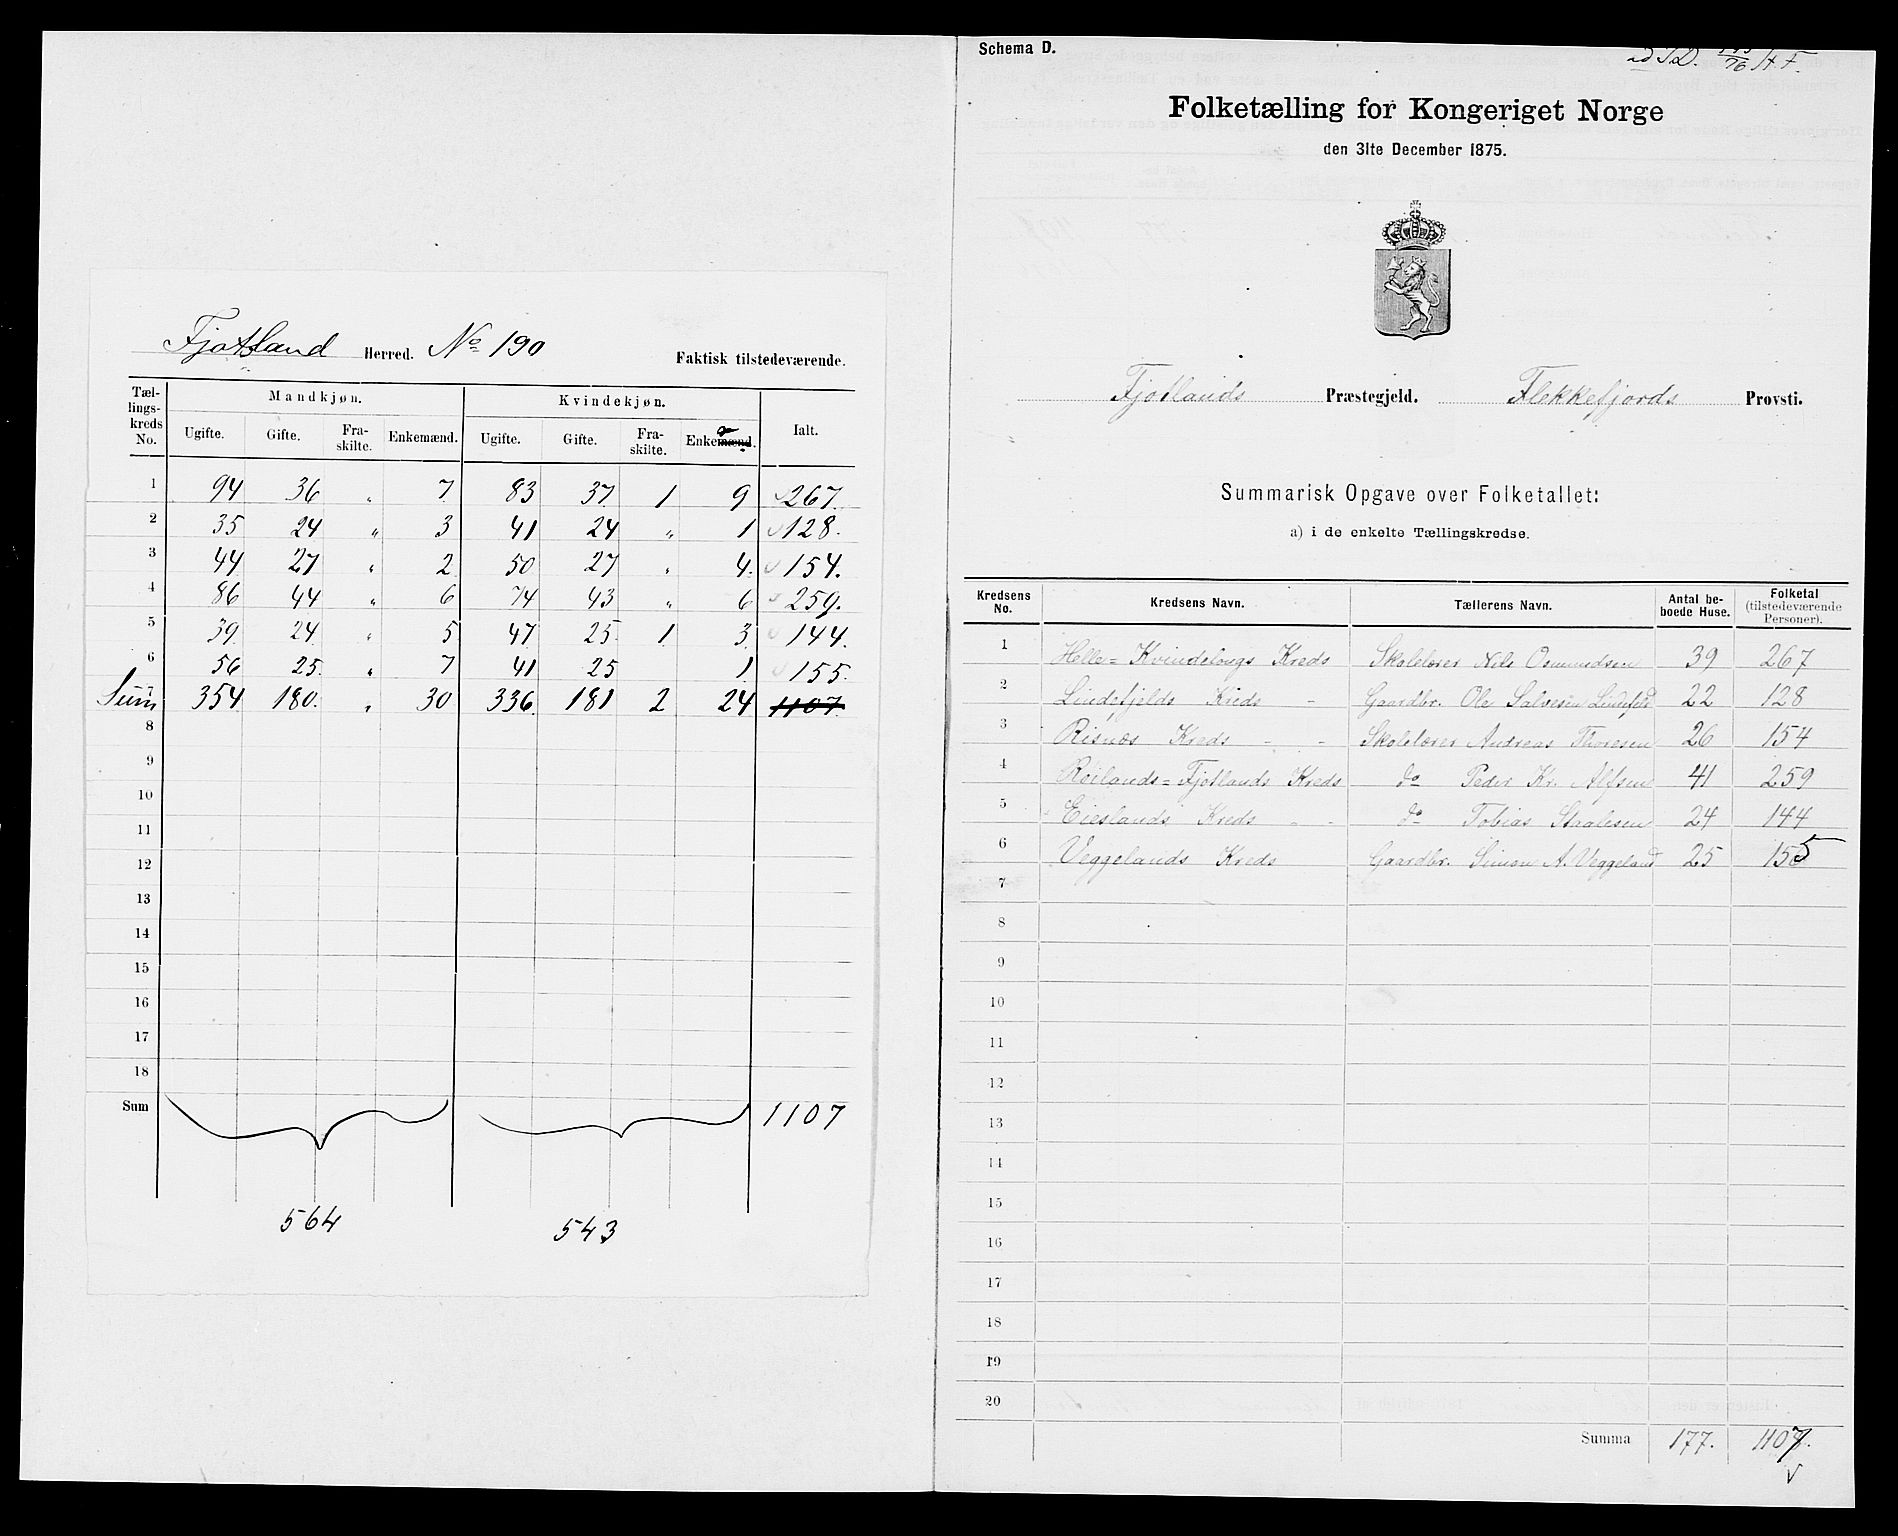 Fjotland Herred. No 190 Faktisk tilstedeværende.
Tællingskreds No. Mandkjøn. Kvindekjøn. Ialt.
Ugifte. Gifte. Fraskilte. Enkemænd. Ugifte. Gifte. Fraskilte. Enkemænd.
1 94 36 " 7 83 37 1 9 267.
2 35 24 " 3 41 24 " 1 128.
3 44 27 " 2 50 27 " 4. 154.
4 86 44 " 6 74 43 " 6 259.
5 39 24 " 5 47 25 1 3 144.
6 56 25 " 7 41 25 1 155.
7 Sum 354 180. " 30 336 181 2 24 1107
8
9
10
11
12
13
14
15
16
17
18
Sum 1107
564 543
Schema D.
Folketælling for Kongeriget Norge
den 31te December 1875.
Fjotlands Præstegjeld. Flekkefjords Provsti.
Summarisk Opgave over Folketallet:
a) i de enkelte Tællingskredse.
Kredsens No. Kredsens Navn. Tællerens Navn. Antal beboede Huse. Folketal (tilstedeværende Personer).
1 Helle= Kvindelongs Kreds Skolelærer Nils Osmundsen 39 267
2 Lindefjelds Kreds - Gaardbr. Ole Salvesen Lindefjeld 22 128
3 Risnæs Kreds - - Skolelærer Andreas Thoresen 26 154
4 Röilands= Fjotlands Kreds do Peder Kr. Alfsen 41 259
5 Eieslands Kreds - - do Tobias Staalesen 24 144
6 Veggelands Kreds Gaardbr. Simon A. Veggeland 25 155
7
8
9
10
11
12
13
14
15
16
17
18
19
20
Summa 177. 1107.